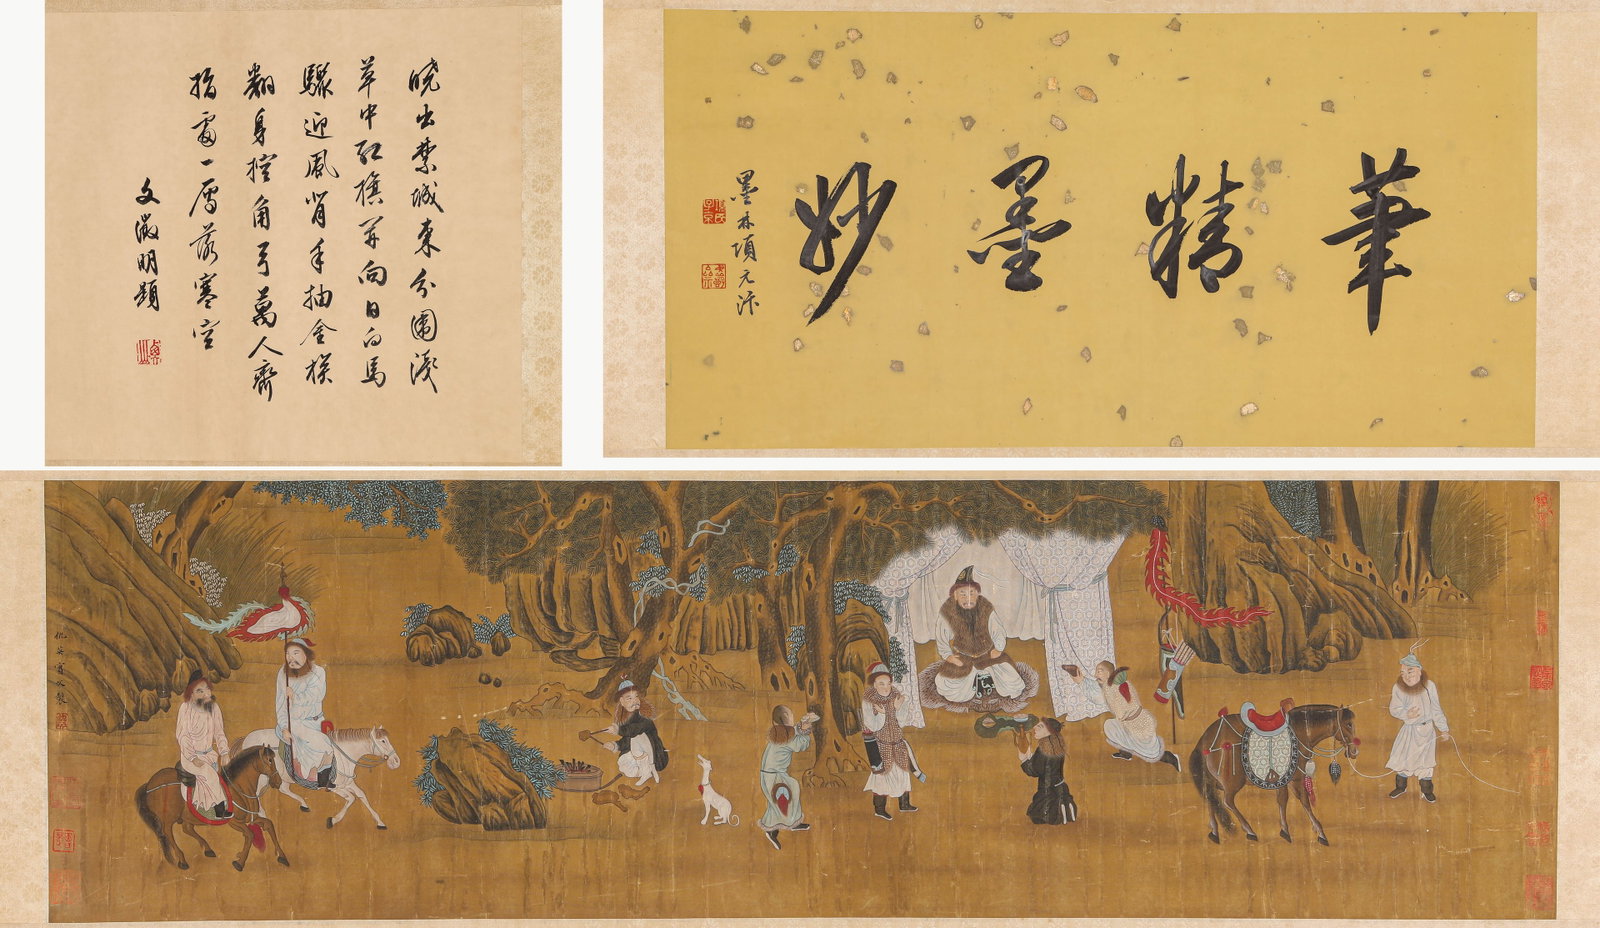 筆精墨妙
墨林項元汴
曉出禁城東分圍淺
草中紅旗開向日白馬
驟迎風背手抽金鏃
翻身控角弓萬人齊
指處一雁落寒空
文徵明題
仇英實父製